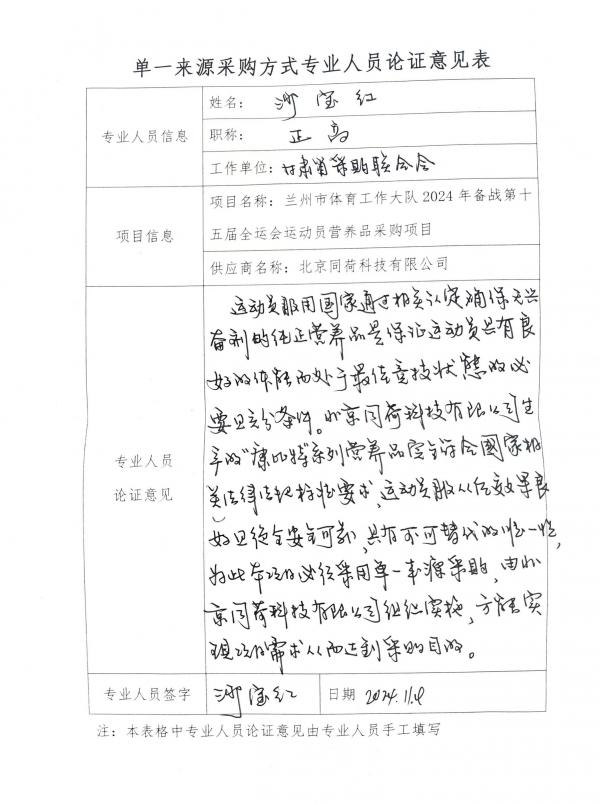 单一来源采购方式专业人员论证意见表
专业人员信息
姓名： 沙宝红
职称： 正高
工作单位：甘肃省采购联合会
项目信息
项目名称：兰州市体育工作大队2024年备战第十
五届全运会运动员营养品采购项目
供应商名称：北京同荷科技有限公司
专业人员
论证意见
运动员服用国家通过相关认定确保无兴
奋剂的纯正营养品是保证运动员具有良
好的体能而处于最佳竞技状态的必
要且充分条件。北京同荷科技有限公司生
产的“康比特”系列营养品完全符合国家相
关法律法规标准要求，运动员服从任效果良
好且绝全安全可靠，具有不可替代的唯一性，
为此本项目必须采用单一来源采购，由北
京同荷科技有限公司组织实施，方能实
现项目需求从而达到采购目的。
专业人员签字
沙宝红
日期 2024.11.4
注：本表格中专业人员论证意见由专业人员手工填写